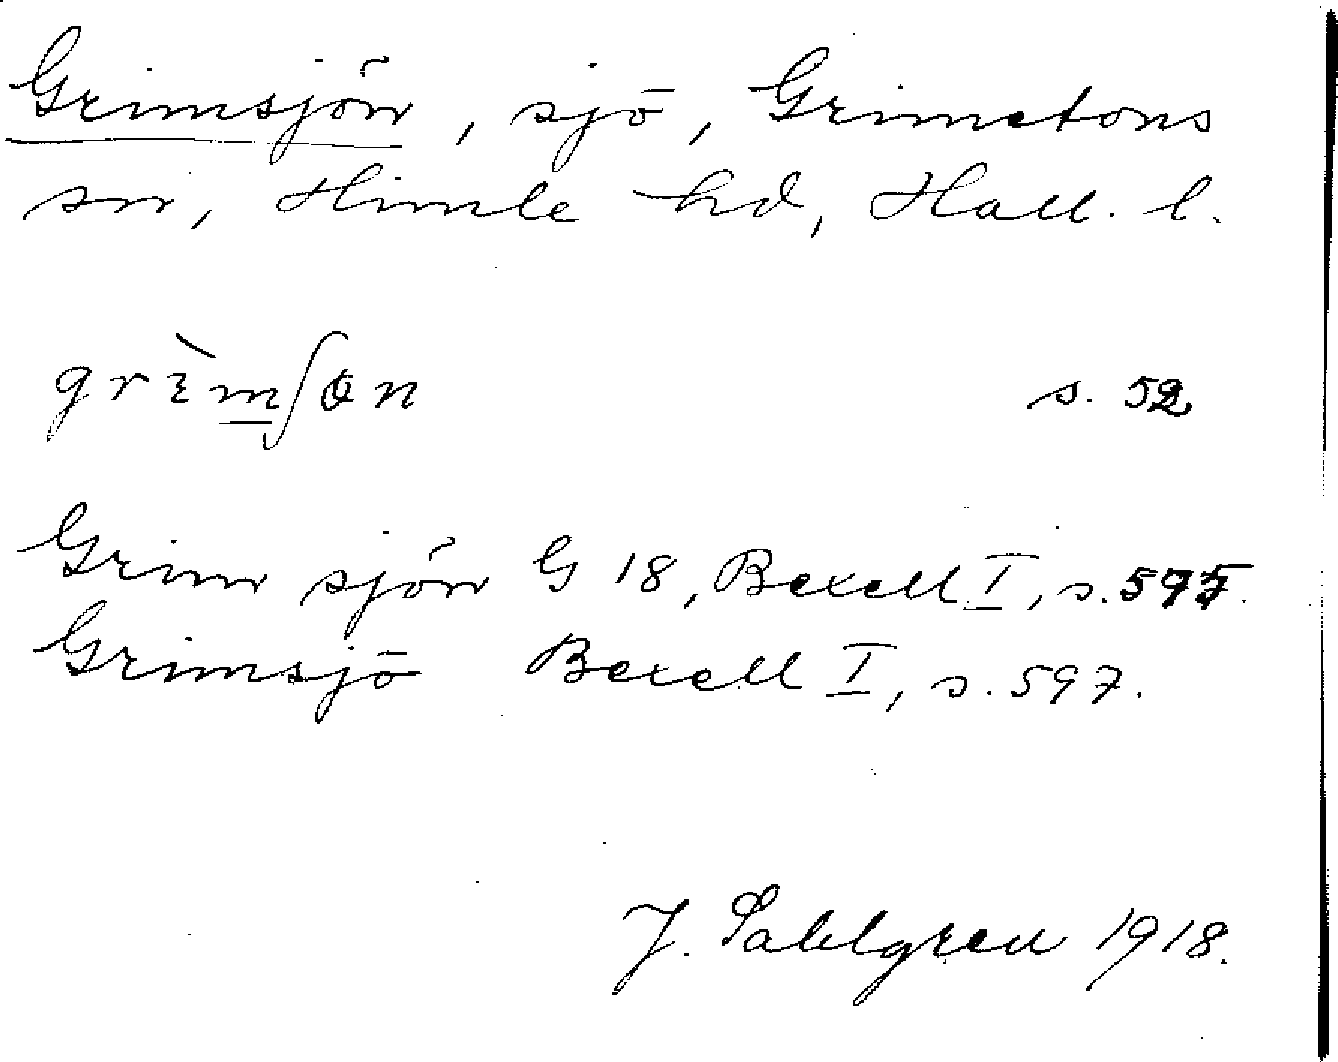 Grimsjön, sjö, Grimetons
sn, Himle hd, Hall. l.
grìmʃɵn s. 52
Grim sjön G 18, Bexell I, s. 575.
Grimsjö Bexell I, s. 597.
J. Sahlgren 1918.